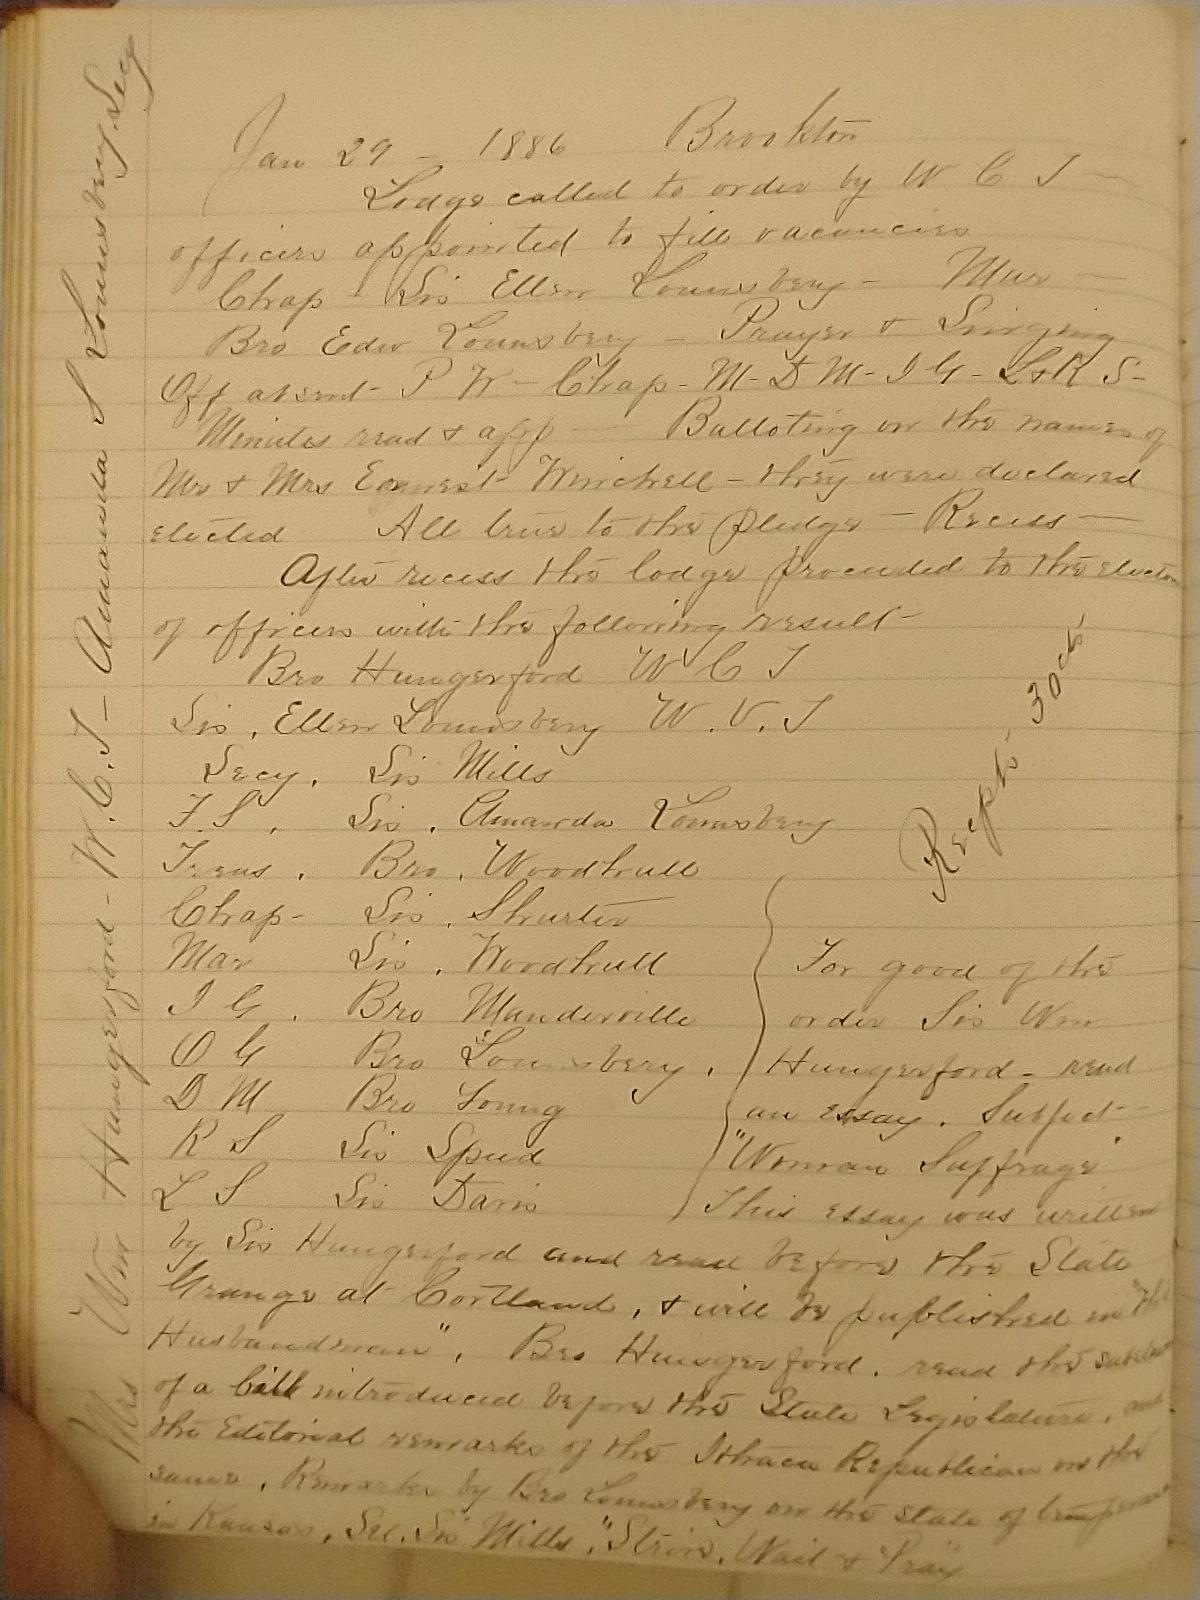 Jan 29 - 1886 Brookton
Lodge called to order by W C T -
officers appointed to fill vacancies
Chap - Sis Ellen Lounsbery - Mar -
Bro Edw Lounsbery - Prayer & Singing
Off absent P W - Chap - M - D M - I G - L & R S -
Minutes read & app - Balloting on the names of
Mr & Mrs Earnest Winchell - they were declared
elected All true to the pledge - Recess -
After recess the lodge proceeded to the election
of officers with the following result -
Bro Hungerford W C T
Sis. Ellen Lounsbery W. V. T
Secy. Sis Mills
F. S. Sis. Amanda Lounsbery
Treas. Bro. Woodhull
Chap - Sis. Shurter
Mar Sis. Woodhull
I G. Bro Manderville
O G Bro Lounsbery.
D M Bro Young
R S Sis Speed
L S Sis Davis
Recpts 30 cts.
For good of the
order Sis Wm
Hungerford - read
an essay. Subject -
"Woman Suffrage"
This essay was written
by Sis Hungerford and read before the State
Grange at Cortland, & will be published in "The
Husbandman". Bro Hungerford. read the
of a bill introduced before the State Legislature. and
the Editorial remarks of the Ithaca Republican on the
same. Remarks by Bro Lounsbery on the state of temperance
in Kansas. Sel. Sis Mills. "Strive, Wait & Pray"
Mrs Wm Hungerford - W. C. T - Amanda S Lounsbery. Secy